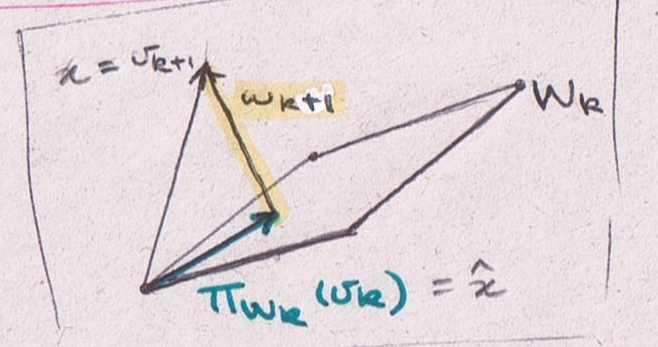 x = v_{k+1}
w_{k+1}
W_k
π_{W_k}(v_k) = x̂